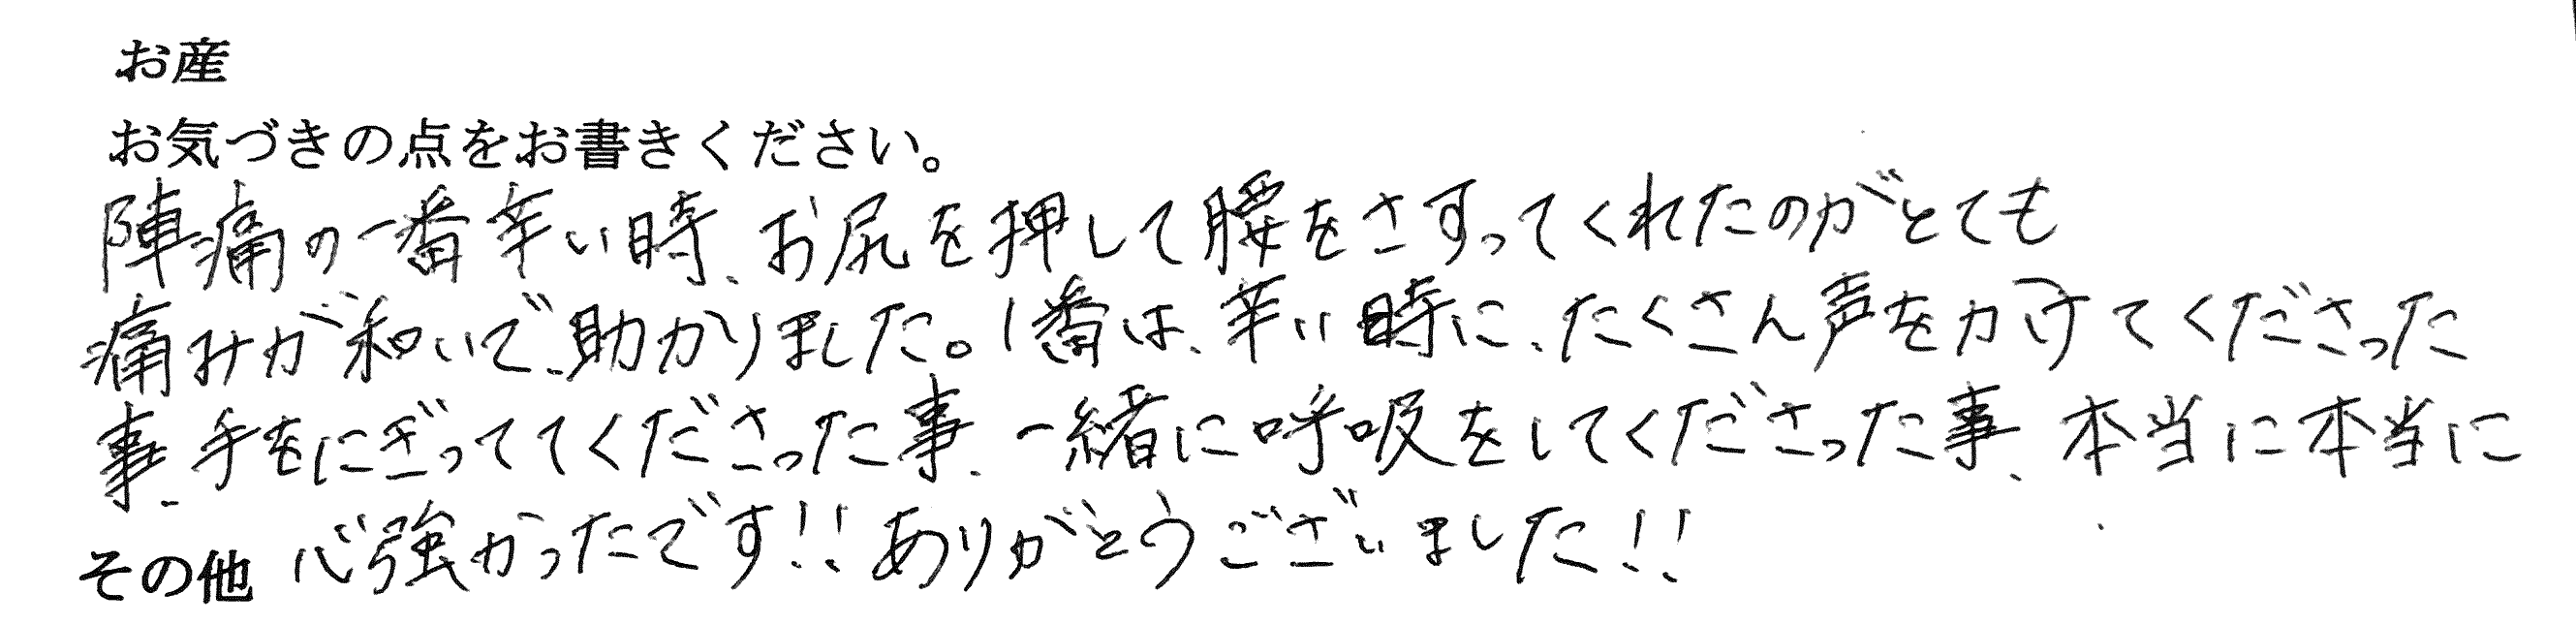 お産
お気づきの点をお書きください。
陣痛の一番辛い時、お尻を押して腰をさすってくれたのがとても
痛みが和いで、助かりました。1番は、辛い時に、たくさん声をかけてくださった
事、手をにぎっててくださった事、一緒に呼吸をしてくださった事、本当に本当に
その他 心強かったです!!ありがとうございました!!